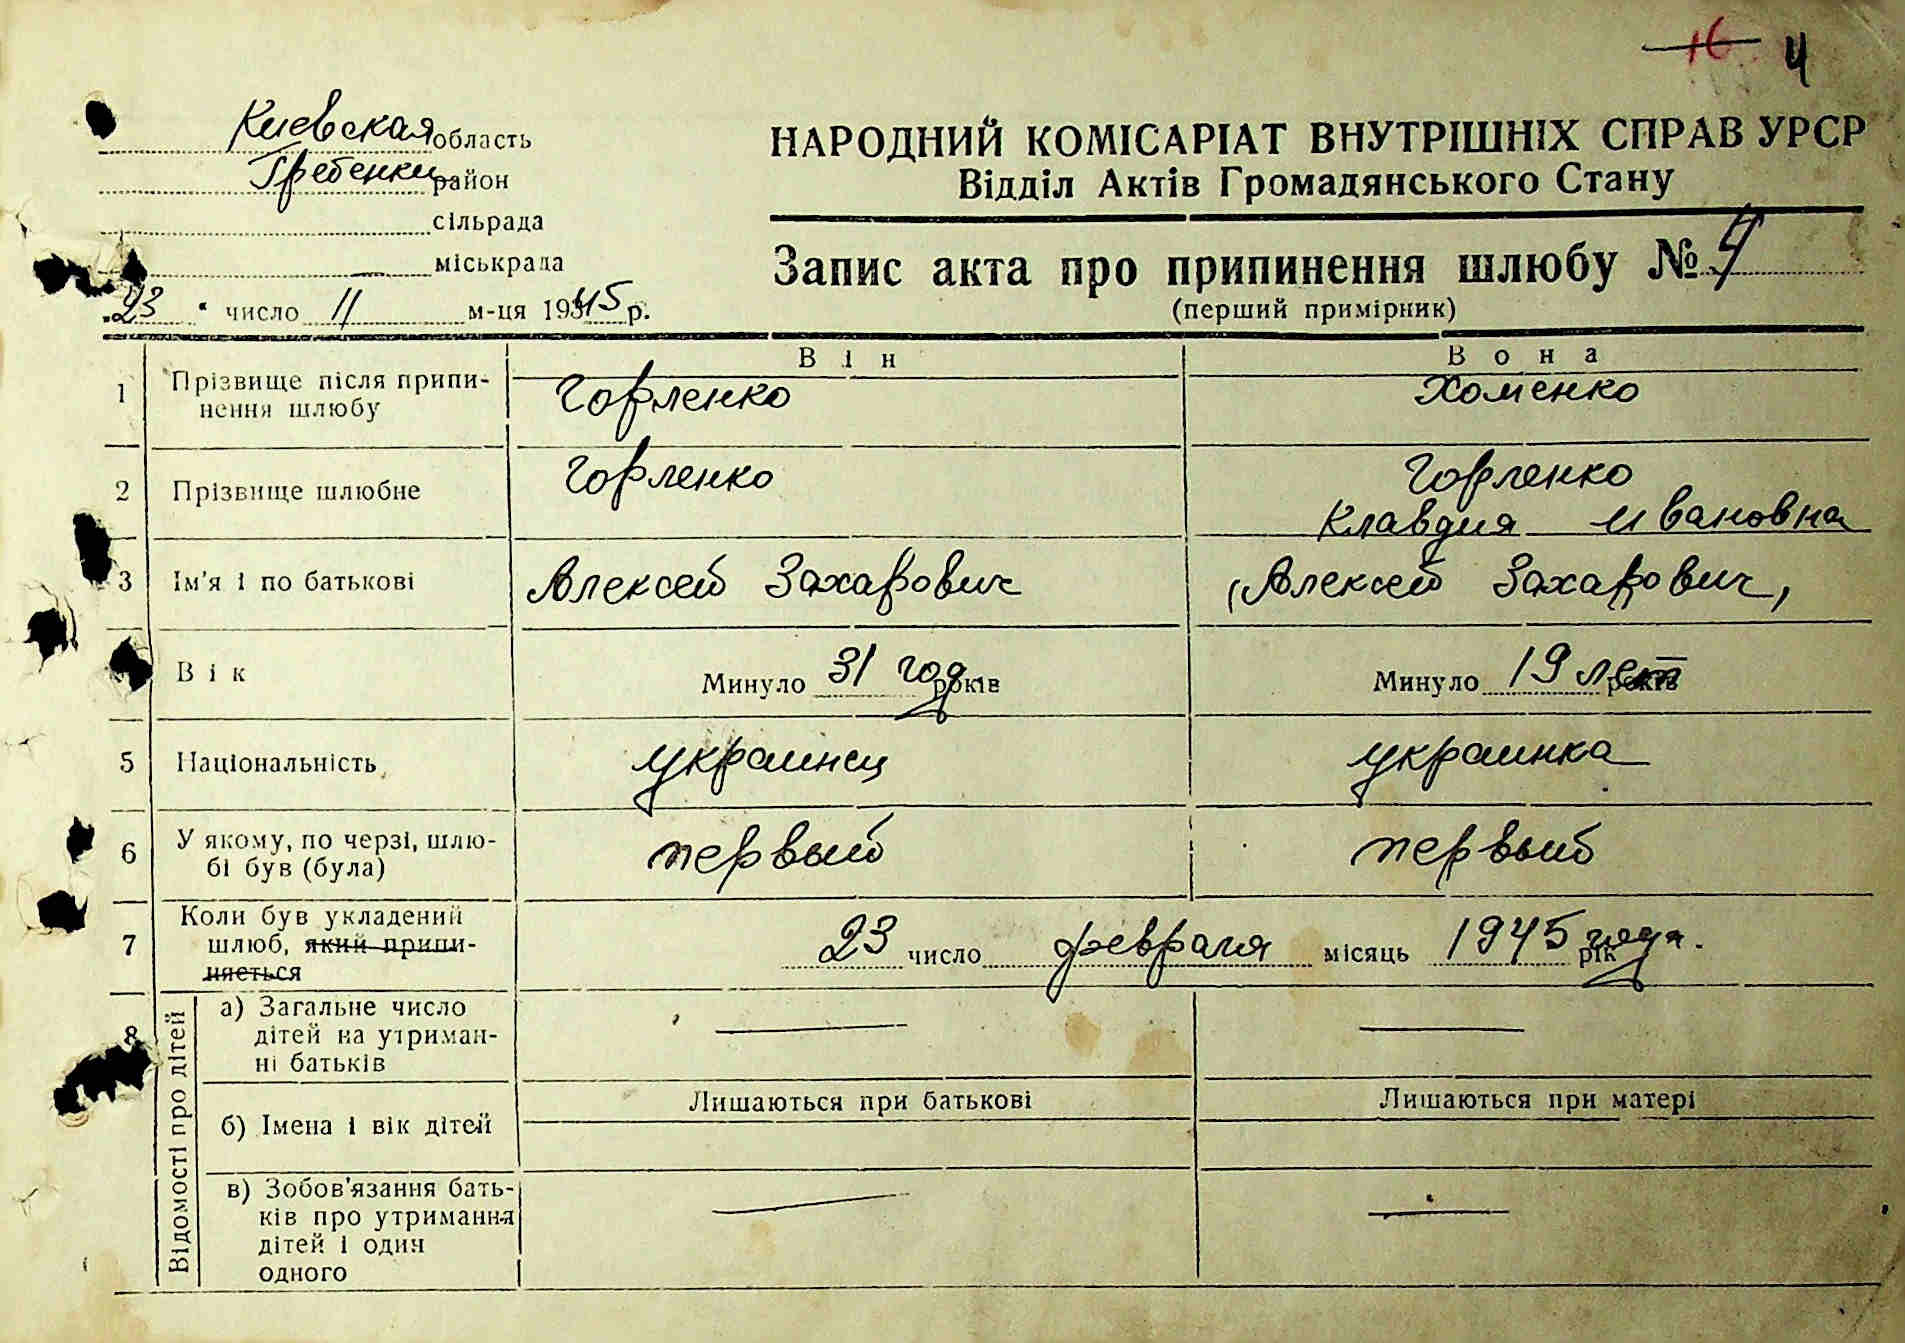 16 4
Киевская область
Гребенки район
сільрада
міськрада
„23“ число 11 м-ця 1945 р.
НАРОДНИЙ КОМІСАРІАТ ВНУТРІШНІХ СПРАВ УРСР
Відділ Актів Громадянського Стану
Запис акта про припинення шлюбу № 4
(перший примірник)
Він Вона
1 Прізвище після припи-
нення шлюбу
Горленко Хоменко
2 Прізвище шлюбне
Горленко Горленко
Клавдия Ивановна
3 Ім'я і по батькові
Алексей Захарович (Алексей Захарович)
Вік
Минуло 31 год років Минуло 19 лет років
5 Національність
украинец украинка
6 У якому, по черзі, шлю-
бі був (була)
первый первый
7 Коли був укладений
шлюб, який припи-
няється
23 число февраля місяць 1945 года. рік
8 Відомості про дітей
а) Загальне число
дітей на утриман-
ні батьків
б) Імена і вік дітей
Лишаються при батькові Лишаються при матері
в) Зобов'язання бать-
ків про утримання
дітей і один
одного